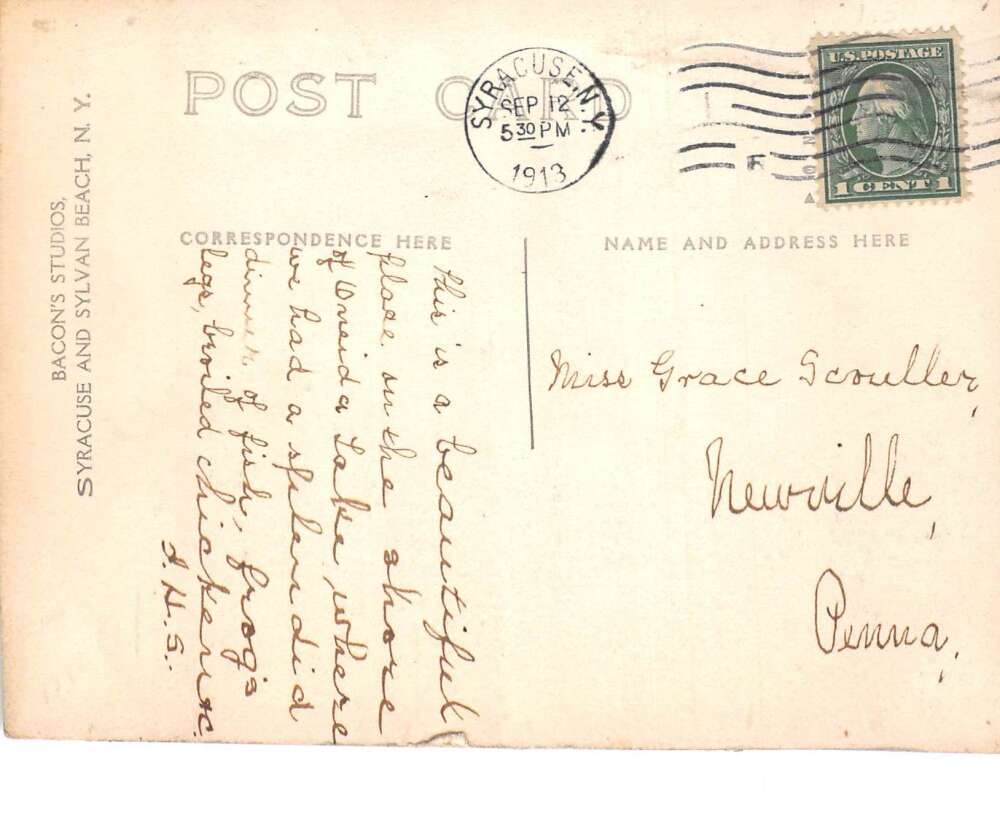 POST CARD
SYRACUSE, N.Y.
SEP 12
5 30 PM
1913
U.S. POSTAGE
1 CENT 1
BACON'S STUDIOS,
SYRACUSE AND SYLVAN BEACH, N. Y.
CORRESPONDENCE HERE
This is a beautiful
place on the shore
of Oneida Lake where
we had a splendid
dinner of fish, frog's
legs, broiled chicken &c.
NAME AND ADDRESS HERE
Miss Grace Scouller,
Newville,
Penna.